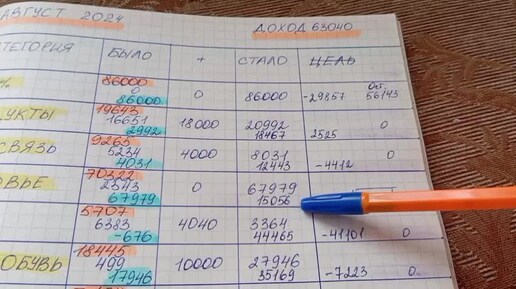 АВГУСТ 2024 ДОХОД 63040
АТЕГОРИЯ БЫЛО + СТАЛО ЦЕЛЬ
% 86000 0 86000 0 86000 -29857 Ост. 56143
УКТЫ 19643 16651 2992 18000 20992 18467 2525 0
СВЯЗЬ 9265 5234 4031 4000 8031 12443 -4412 0
ОВЬЕ 70322 2343 67979 0 67979 15056
5707 6383 -676 4040 3364 44465 -41101 0
ОБУВЬ 18445 499 17946 10000 27946 35169 -7223 0